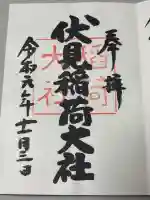 奉拝
伏見稲荷大社
令和六年十一月三日
稲荷
大社